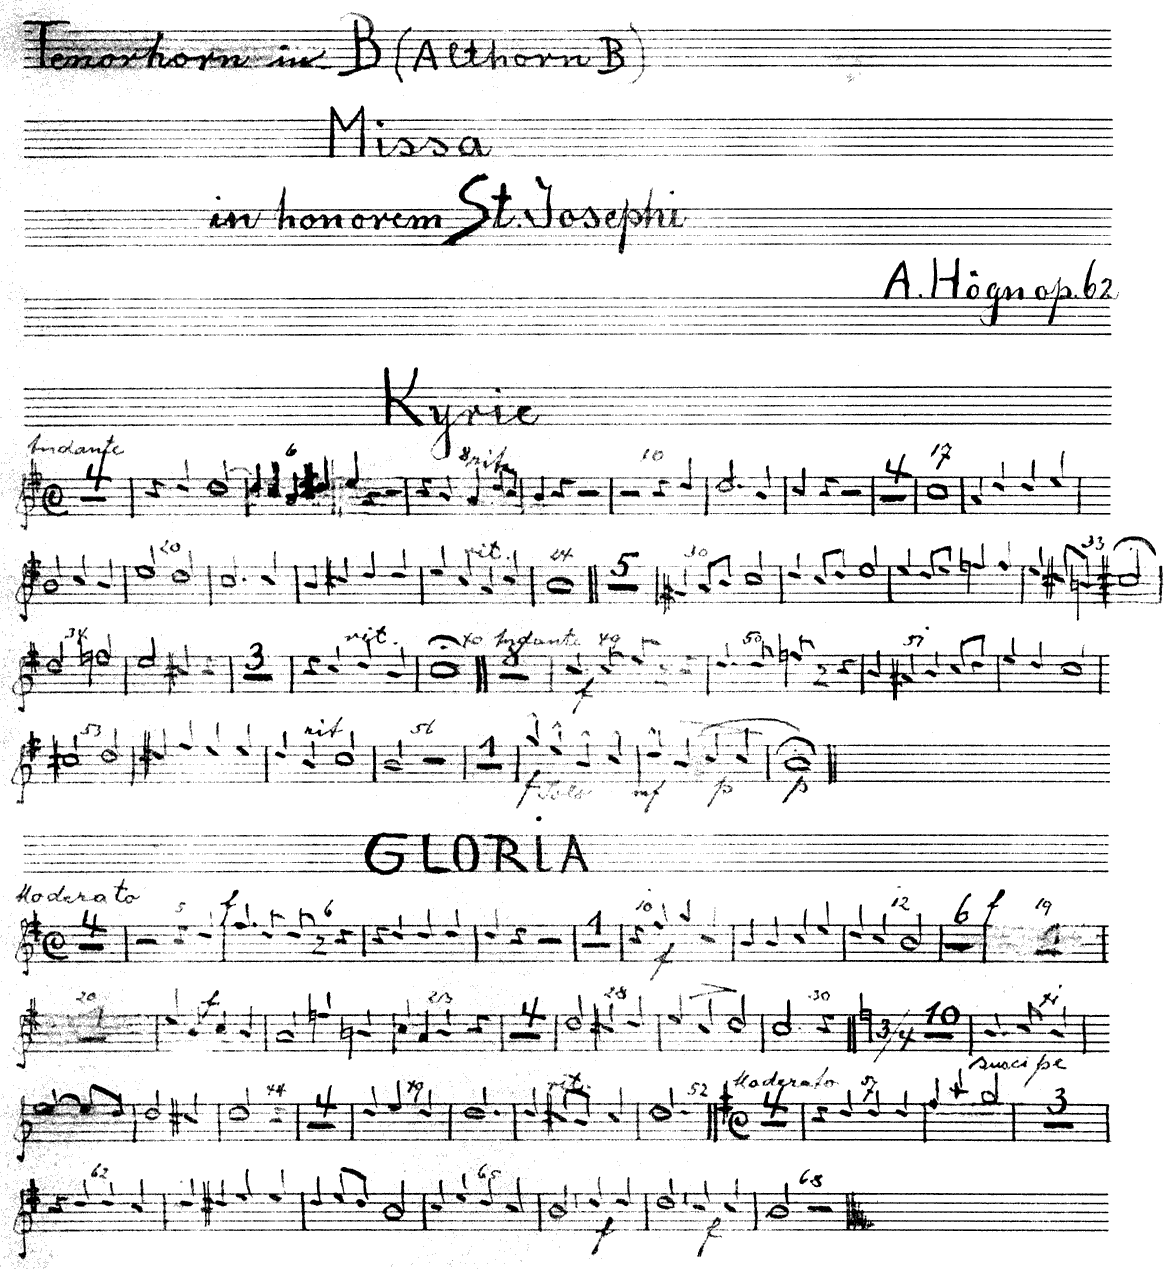 Tenorhorn in B (Althorn B)
Missa
in honorem St. Josephi
A. Högn op. 62
Kyrie
Andante
4 6 8 rit. 10 4 17
20 rit. 24 5 30 33
34 3 rit. 40 Andante 8 49 50 51
f
53 rit 56 1
f Solo mf p p
GLORIA
Moderato
4 5 f 6 1 10 12 6 f 19
f
20 f 23 4 28 30 3/4 10
suscipe
44 4 49 rit. 52 Moderato 4 57 3
62 65 68
f f